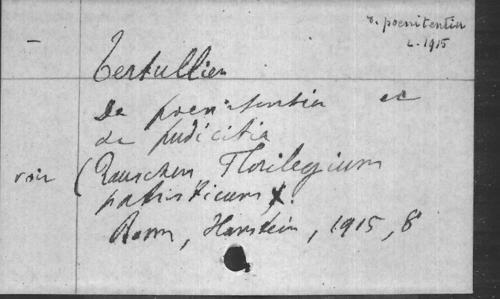 v. poenitentia
L. 1915
Tertullien
De poenitentia et
de pudicitia
voir (Rauschen Florilegium
patristicum, X.
Bonn, Hanstein, 1915, 8°